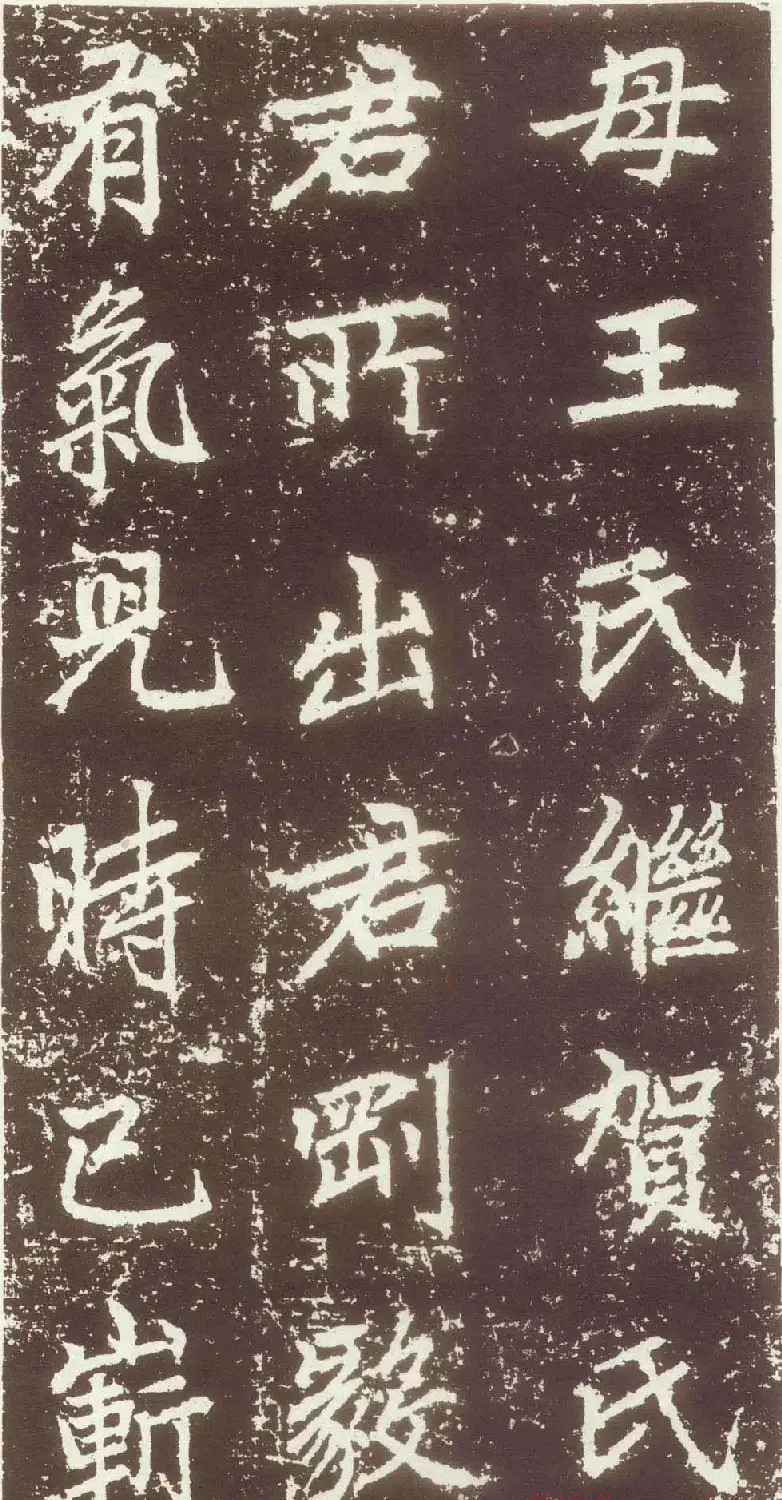 母王氏繼賀氏
君所出君剛毅
有氣兒時已嶄